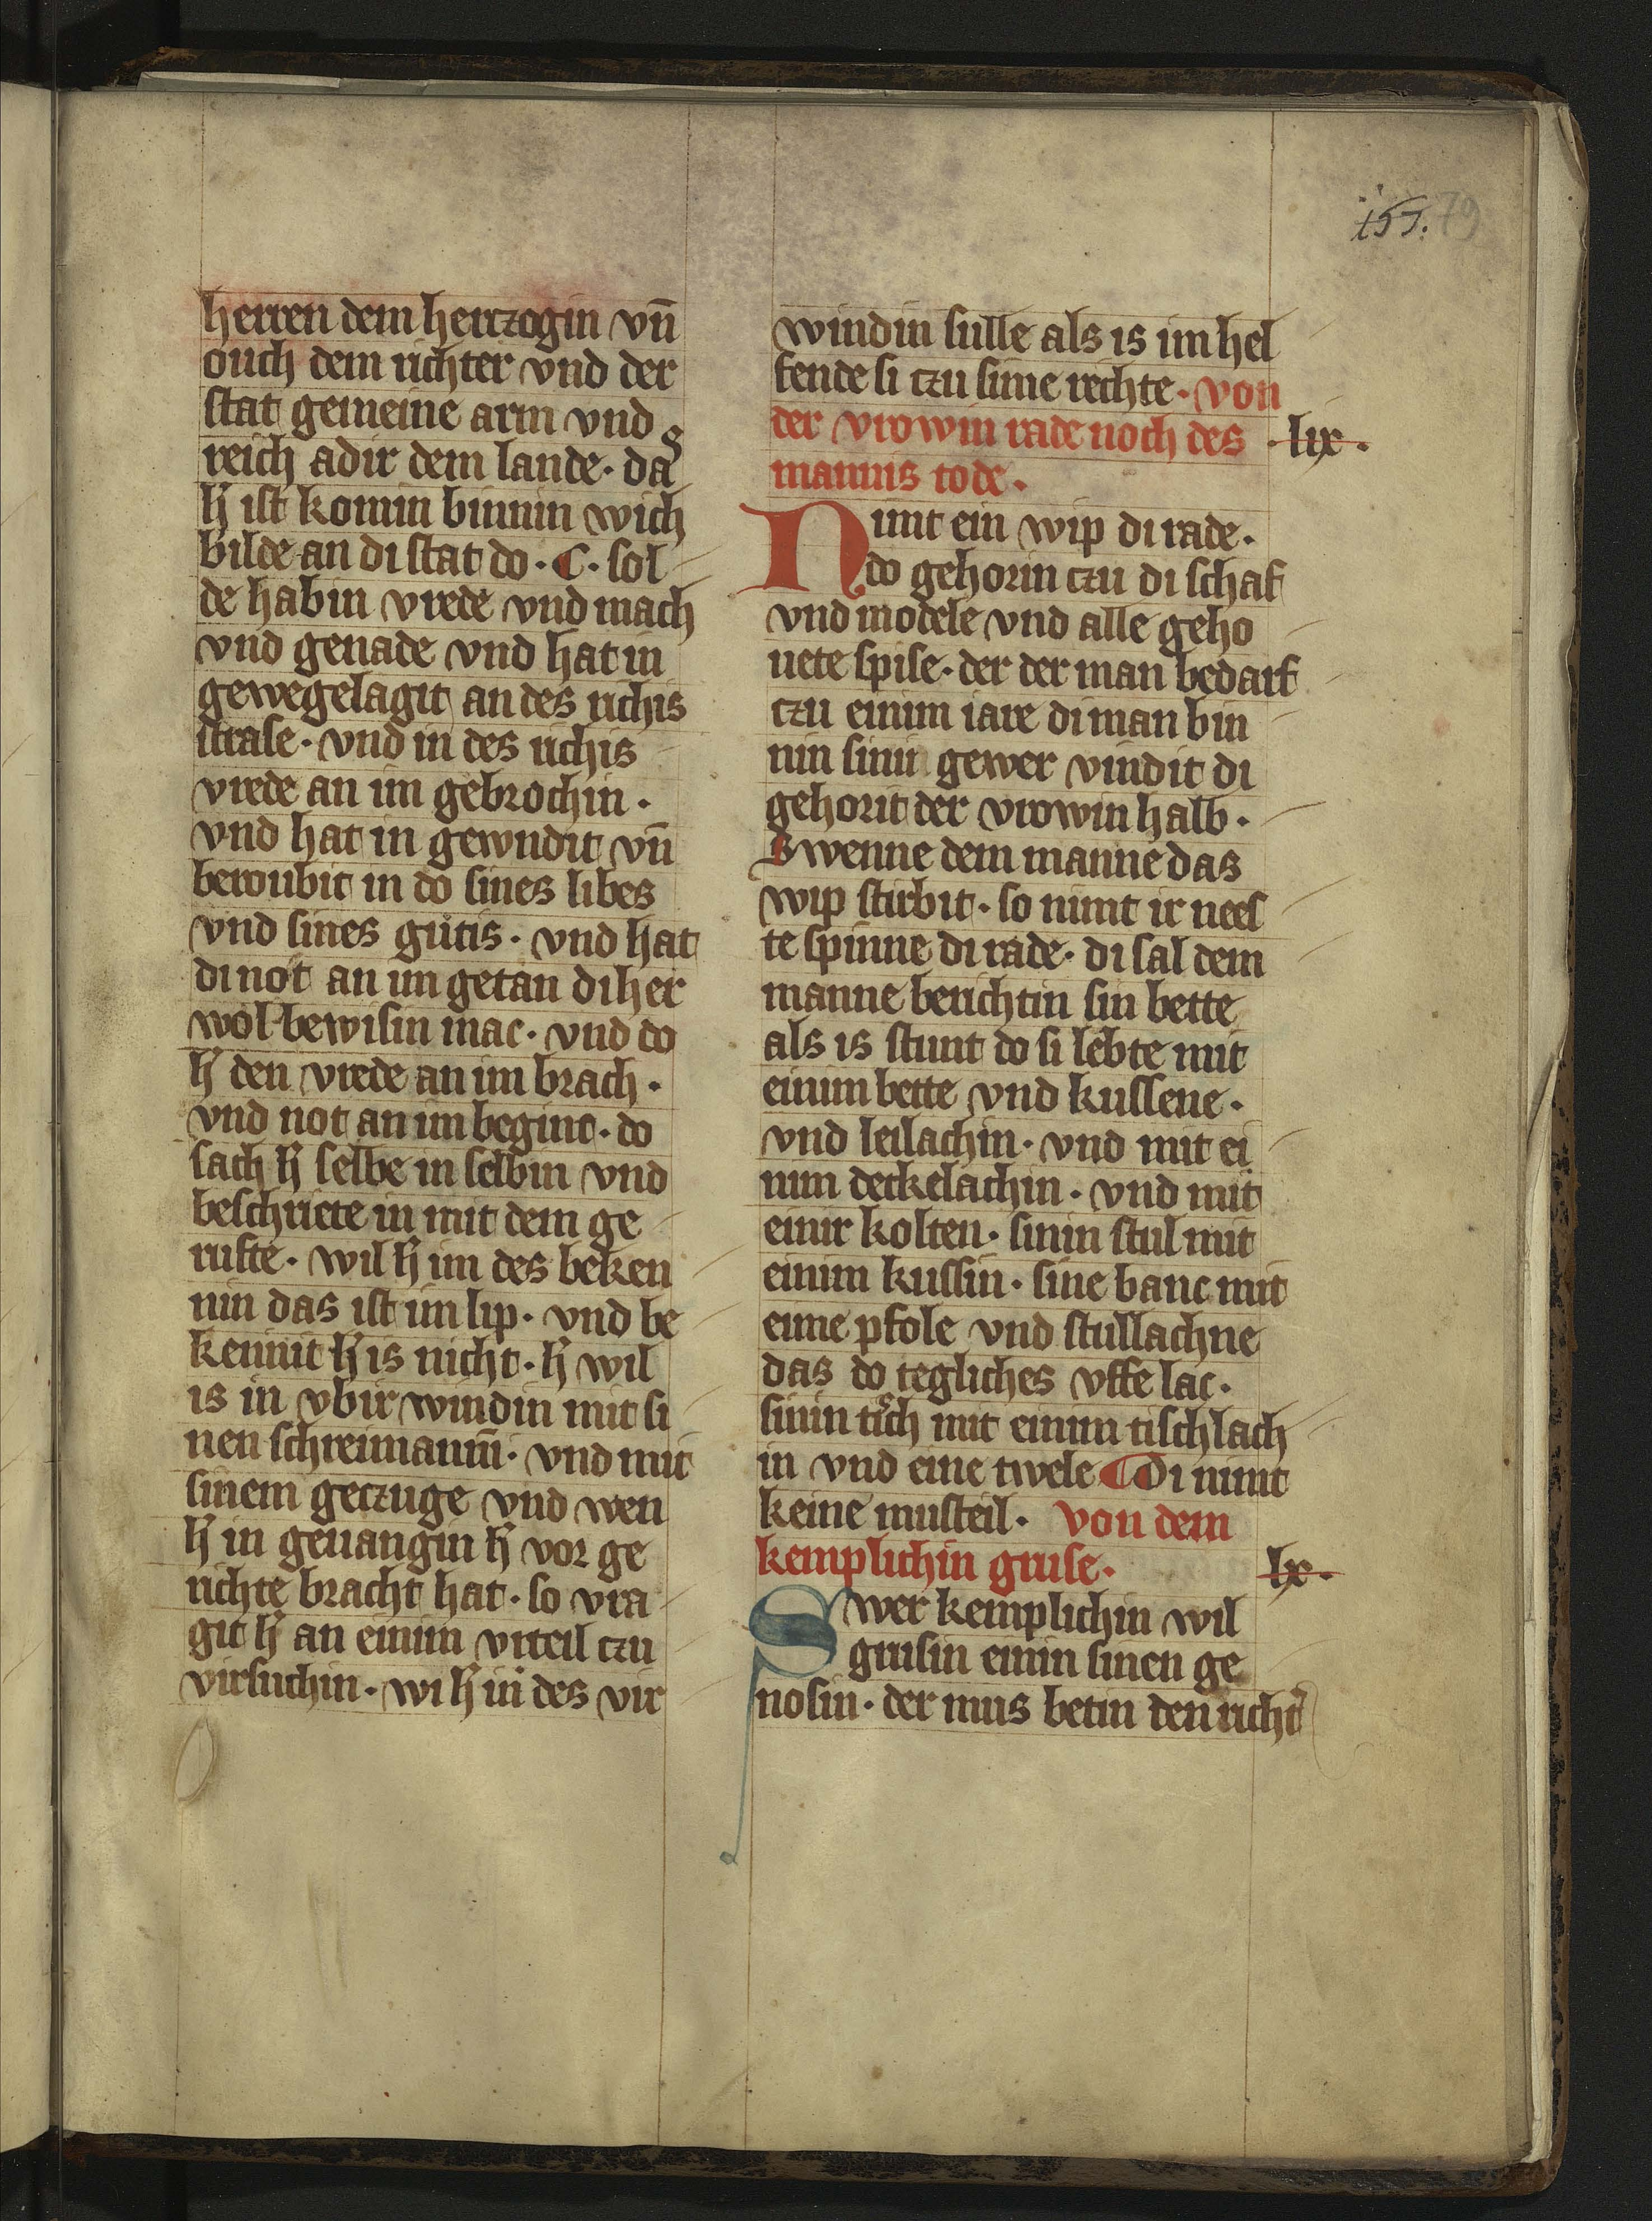 155. 79
herren dem hertzogin vn̄
ouch dem richter vnd der
stat gemeine arm vnd
reich adir dem lande · das
h̄ ist komin binnin wich
bilde an di stat do · C · sol
de habin vrede vnd mach
vnd genade vnd hat in
gewegelagit an des richis
strase · vnd in des richis
vrede an im gebrochin ·
vnd hat in gewndit vn̄
beroubit in do sines libes
vnd sines gutis · vnd hat
di not an im getan di her
wol bewisin mac · vnd do
h̄ den vrede an im brach ·
vnd not an im beginc · do
sach h̄ selbe in selbin vnd
beschriete in mit dem ge
rufte · wil h̄ im des beken
nin das ist im lip · vnd be
kennit h̄ is nicht · h̄ wil
is in vbir windin mit si
nen schreimannin · vnd mit
sinem geczuge vnd wen
h̄ in geuangin h̄ vor ge
richte bracht hat · so vra
git h̄ an einim vrteil czu
virsuchin · wi h̄ in des vir
windin sulle als is im hel
fende si czu sime rechte · von
der vrowin rade noch des · lix ·
mannis tode ·
Nimt ein wip di rade ·
do gehorin czu di schaf
vnd modele vnd alle geho
uete spise · der der man bedarf
czu einim iare di man bin
nin sinir gewer vindit di
gehorit der vrowin halb ·
Swenne dem manne das
wip stirbit · so nimt ir nees
te spinne di rade · di sal dem
manne berichtin sin bette
als is stunt do si lebte mit
einim bette vnd kussene ·
vnd leilachin · vnd mit ei
nim deckelachin · vnd mit
einir kolten · sinin stul mit
einim kussin · sine banc mit
eime pfole vnd stullachne
das do tegliches vffe lac ·
sinin tisch mit einim tischlach
in vnd eine twele Di nimt
keine musteil · von dem
kemplichin gruse · lx ·
Swer kemplichin wil
grusin einin sinen ge
nosin · der mus betin den richt̄